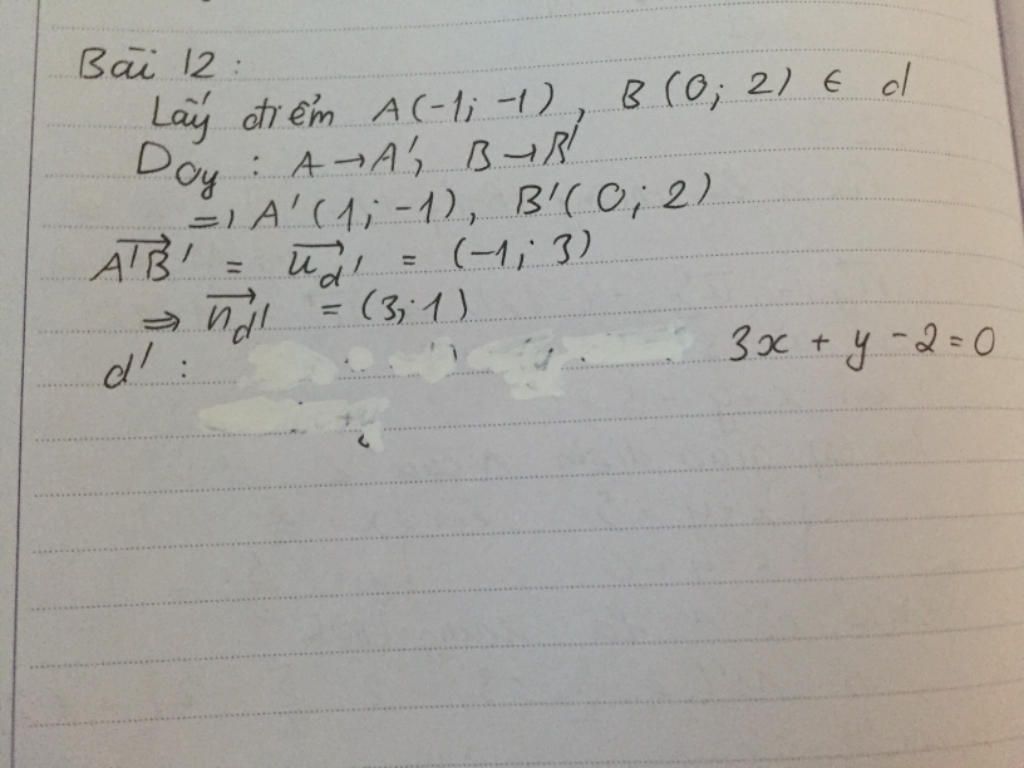 Bài 12 :
Lấy điểm A(-1; -1), B(0; 2) ∈ d
Đoy : A → A', B → B'
=) A'(1; -1), B'(0; 2)
A'B' = u d' = (-1; 3)
⇒ n d' = (3; 1)
d' : 3x + y - 2 = 0